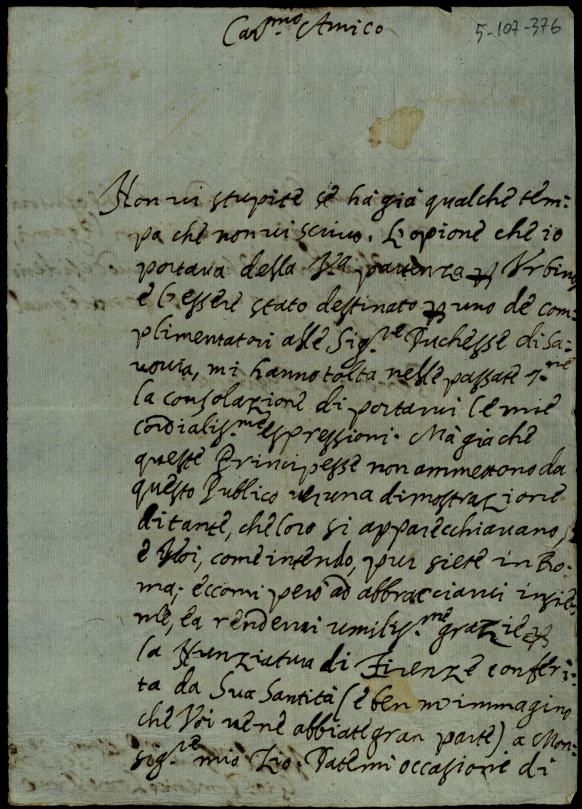 Car.mo Amico
5-107-376
Non vi stupite se hà già qualche tem:
pa che non vi scrivo. L'opione che io
portava della Vra partenza p Urbino
e l'essere stato destinato p uno de com:
plimentatori alle Sig.re Duchesse di Sa:
voia, mi hanno tolta nelle passate
la consolazione di portarvi le mie
cordialis.me espressioni. Mà già che
queste Principesse non ammettono da
questo Publico veruna dimostrazione
di tante, che loro si apparecchiavano,
e Voi, come intendo, pur siete in Ro:
ma; eccomi però ad abbracciarvi insie
me, e a rendervi umilis.me grazie p
la Nunziatura di Firenze conferi:
ta da Sua Santità (e ben m'immagino
che Voi ve ne abbiate gran parte) a Mon:
sig.re mio Zio. Datemi occasione di